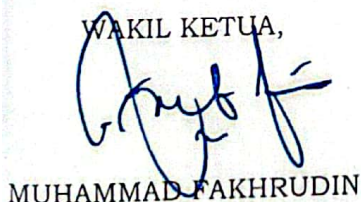 WAKIL KETUA,
MUHAMMAD FAKHRUDIN